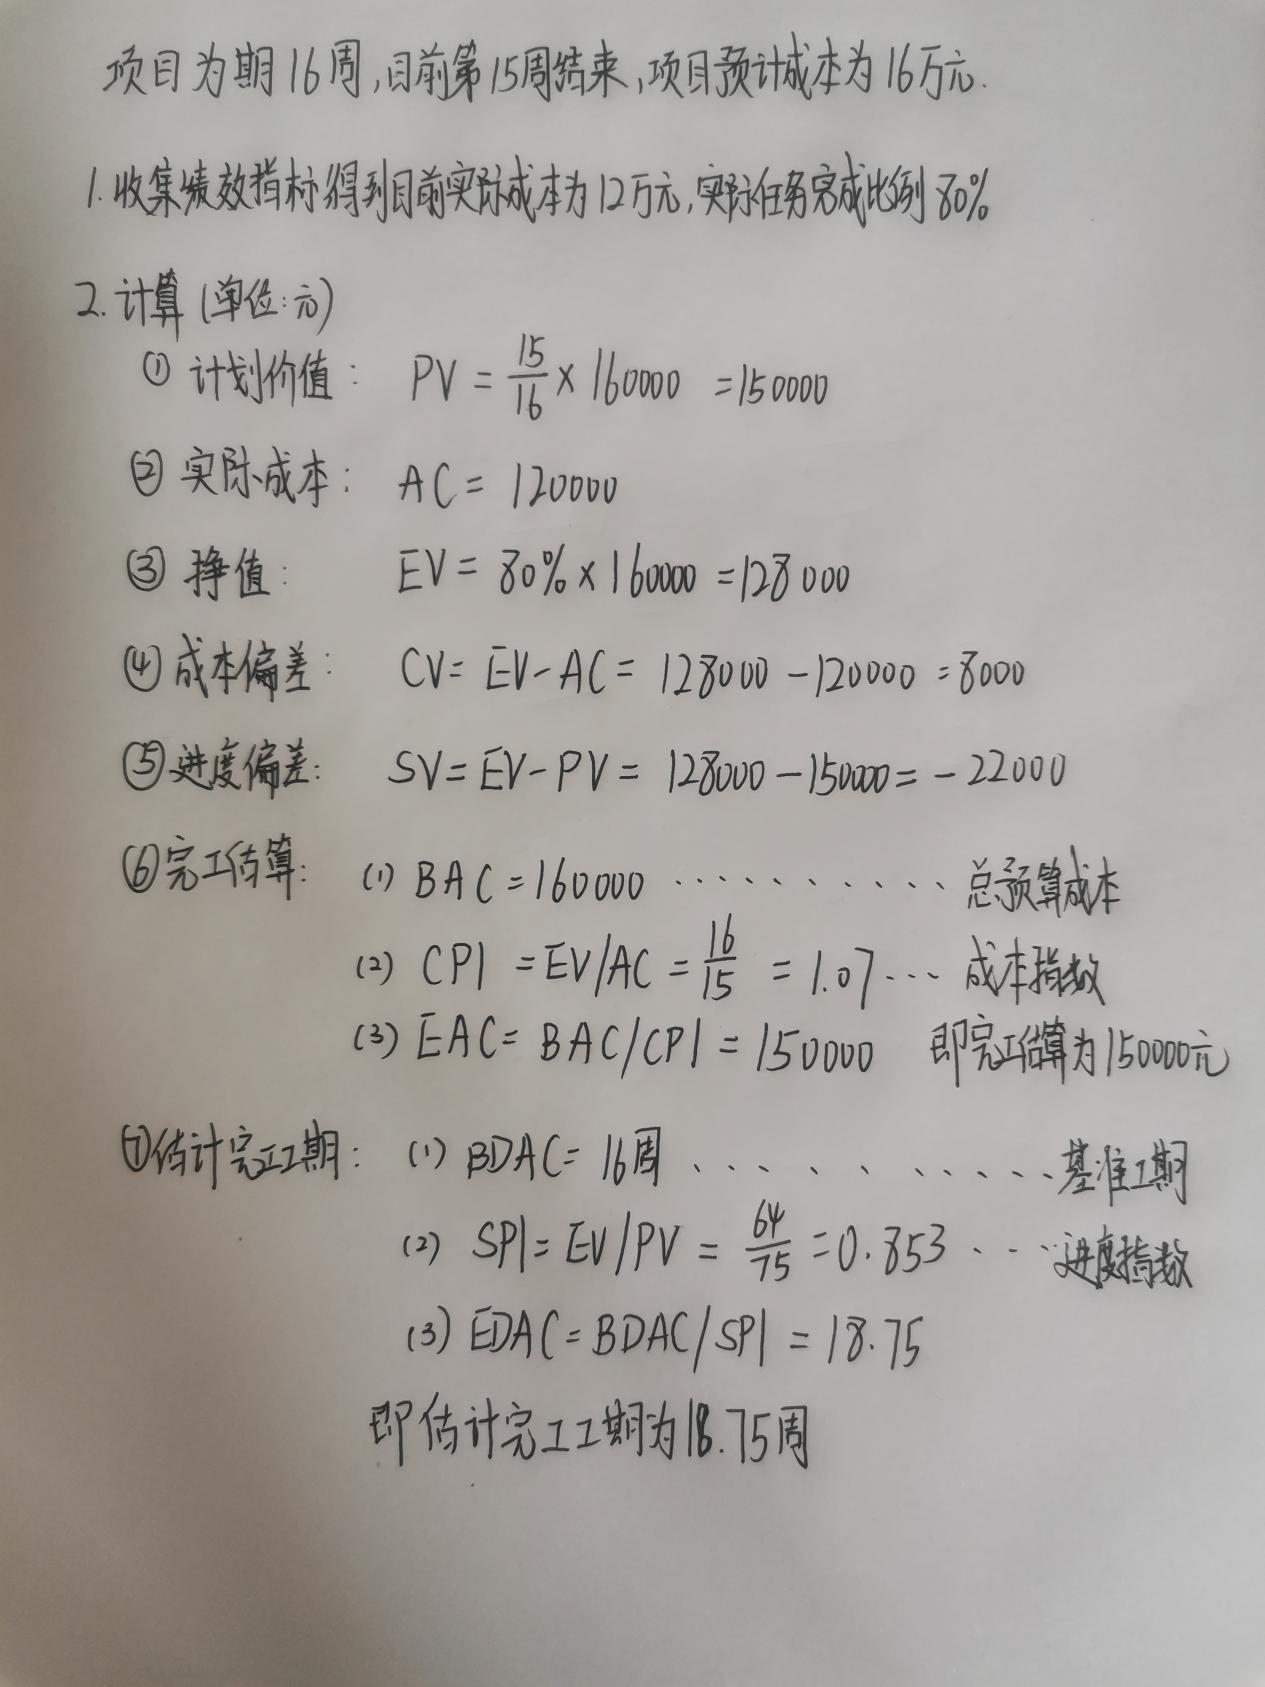 项目为期16周,目前第15周结束,项目预计成本为16万元.
1.收集绩效指标得到目前实际成本为12万元,实际任务完成比例80%
2.计算(单位:元)
① 计划价值: PV = 15/16 × 160000 = 150000
② 实际成本: AC = 120000
③ 挣值: EV = 80% × 160000 = 128000
④ 成本偏差: CV = EV - AC = 128000 - 120000 = 8000
⑤ 进度偏差: SV = EV - PV = 128000 - 150000 = - 22000
⑥ 完工估算: (1) BAC = 160000 ·········· 总预算成本
(2) CPI = EV/AC = 16/15 = 1.07 ··· 成本指数
(3) EAC = BAC/CPI = 150000 即完工估算为150000元
⑦ 估计完工工期: (1) BDAC = 16周 ·········· 基准工期
(2) SPI = EV/PV = 64/75 = 0.853 ··· 进度指数
(3) EDAC = BDAC/SPI = 18.75
即估计完工工期为18.75周